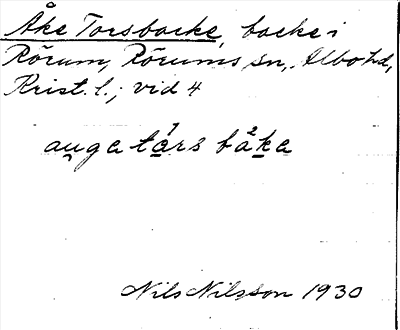 Åke Torsbacke, backe i
Rörum, Rörums sn, Albo hd,
Krist. l.; vid 4
auga tars båka
Nils Nilsson 1930